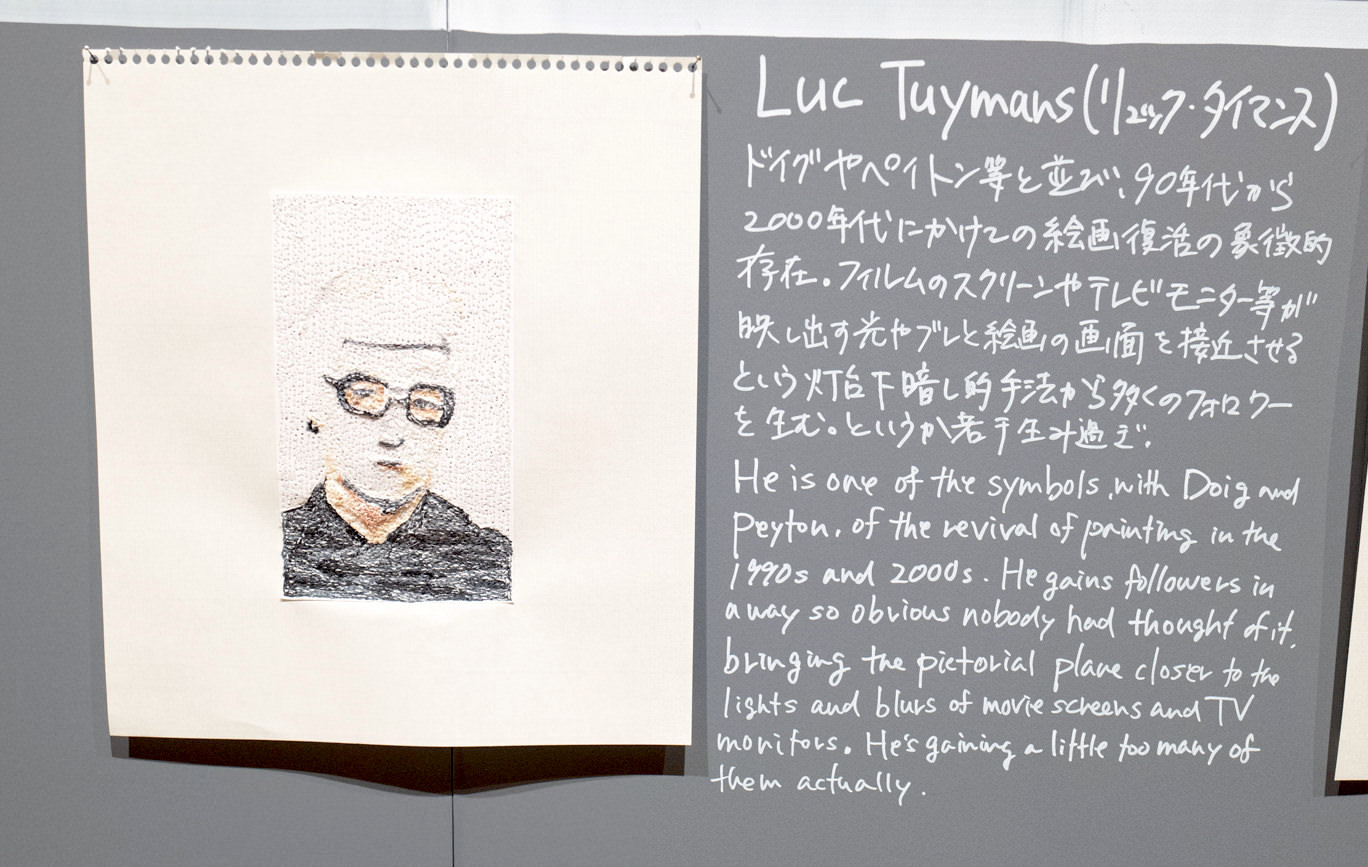 Luc Tuymans (リュック・タイマンス)
ドイグやペイトン等と並び、90年代から
2000年代にかけての絵画復活の象徴的
存在。フィルムのスクリーンやテレビモニター等が
映し出す光やブレと絵画の画面を接近させる
という灯台下暗し的手法から多くのフォロワー
を生む。というか若手生み過ぎ。
He is one of the symbols, with Doig and
Peyton, of the revival of painting in the
1990s and 2000s. He gains followers in
a way so obvious nobody had thought of it,
bringing the pictorial plane closer to the
lights and blurs of movie screens and TV
monitors. He's gaining a little too many of
them actually.